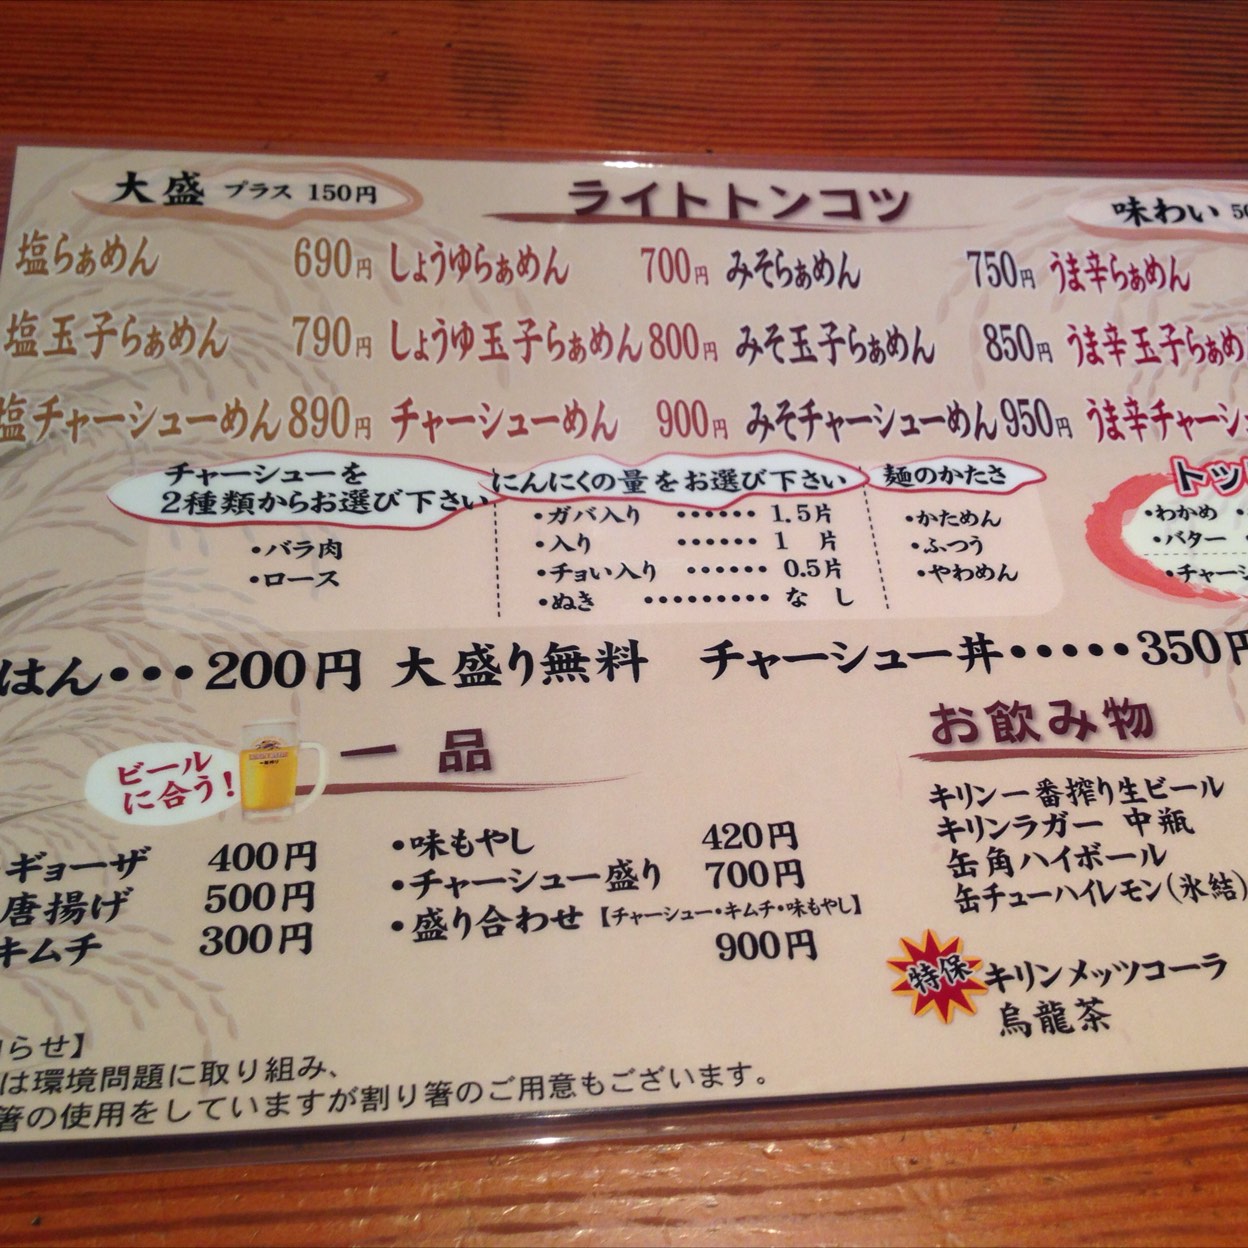 大盛 プラス 150円
ライトトンコツ
味わい
塩らぁめん 690円 しょうゆらぁめん 700円 みそらぁめん 750円 うま辛らぁめん
塩玉子らぁめん 790円 しょうゆ玉子らぁめん 800円 みそ玉子らぁめん 850円 うま辛玉子らぁめ
塩チャーシューめん 890円 チャーシューめん 900円 みそチャーシューめん 950円 うま辛チャーシュ
チャーシューを
2種類からお選び下さい
・バラ肉
・ロース
にんにくの量をお選び下さい
・ガバ入り ・・・・・・ 1.5片
・入り ・・・・・・ 1 片
・チョい入り ・・・・・・ 0.5片
・ぬき ・・・・・・・・・ な し
麺のかたさ
・かためん
・ふつう
・やわめん
トッ
・わかめ ・
・バター ・
・チャーシ
はん・・・200円 大盛り無料 チャーシュー丼・・・・・350円
ビール
に合う!
一品
・ギョーザ 400円
唐揚げ 500円
キムチ 300円
・味もやし 420円
・チャーシュー盛り 700円
・盛り合わせ【チャーシュー・キムチ・味もやし】
900円
お飲み物
キリン一番搾り生ビール
キリンラガー 中瓶
缶角ハイボール
缶チューハイレモン(氷結)
特保 キリンメッツコーラ
烏龍茶
らせ】
は環境問題に取り組み、
箸の使用をしていますが割り箸のご用意もございます。